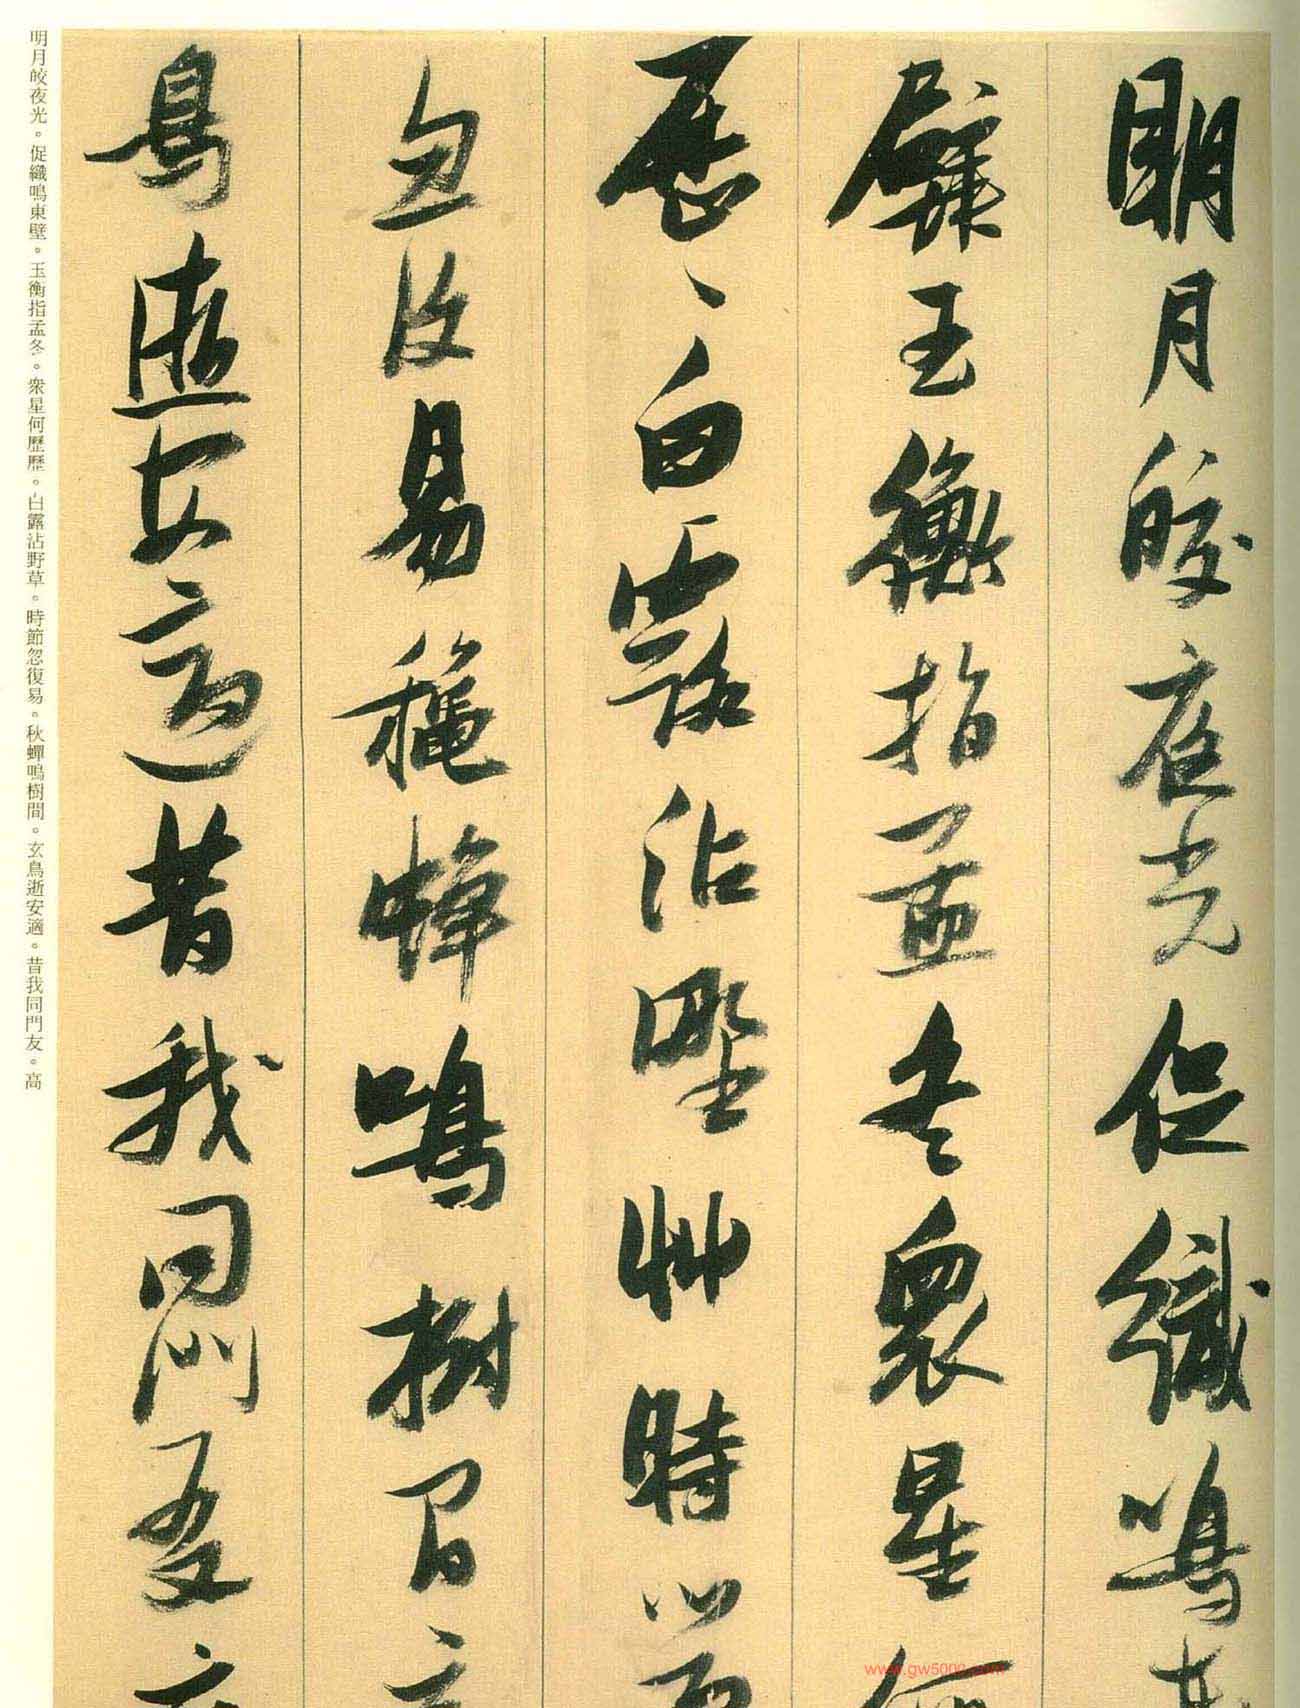 明月皎夜光促織鳴東
壁玉衡指孟冬衆星何
歷〻白露沾野艸時節
忽復易穐蟬鳴樹間玄
鳥逝安適昔我同門友高
明月皎夜光。促織鳴東壁。玉衡指孟冬。衆星何歷歷。白露沾野草。時節忽復易。秋蟬鳴樹間。玄鳥逝安適。昔我同門友。高
www.gw5000.com